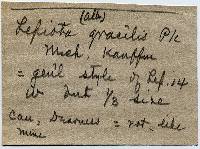 (Alb)
Lepiota gracilis Pk
Mich. Kauffm
= gen'l style of Lep. 14
in but 1/3 size
= not like
mine